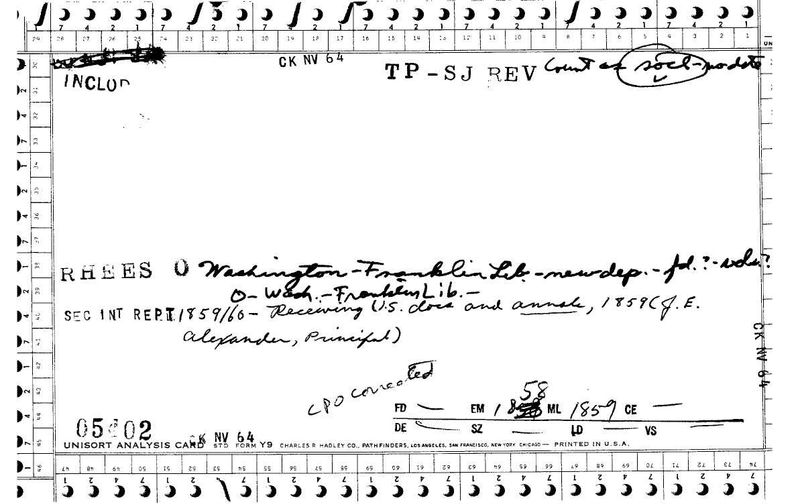 CK NV 64
INCLUD
TP-SJ REV Count as socl-no date
RHEES O Washington-Franklin Lib.-new dep.-fd.?-vols.?
O-Wash.-Franklin Lib.-
SEC INT REPT 1859/60- Receiving U.S. docs and annals, 1859 (J.E.
Alexander, Principal)
CK NV 64
CPO corrected
58
FD — EM 18 ML 1859 CE —
DE — SZ — LD — VS
05 02 CK NV 64
UNISORT ANALYSIS CARD STD FORM Y9 CHARLES R HADLEY CO., PATHFINDERS, LOS ANGELES, SAN FRANCISCO, NEW YORK CHICAGO — PRINTED IN U.S.A.